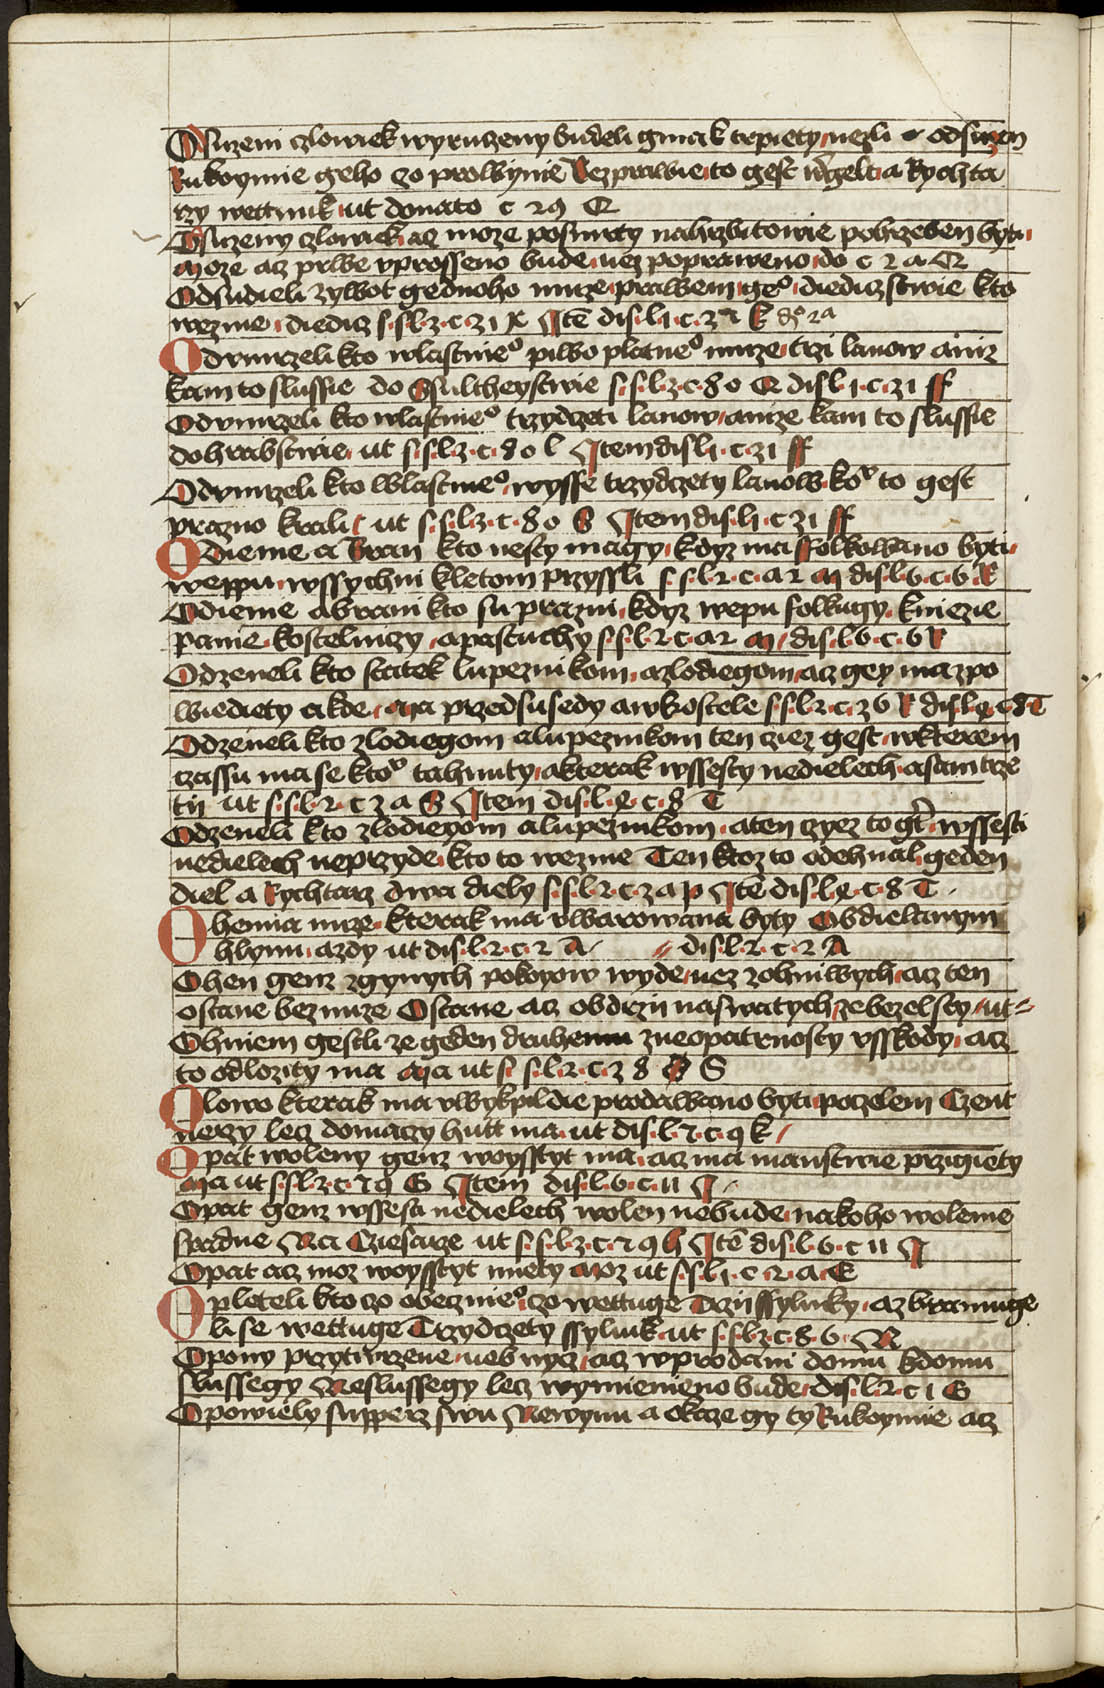 Osuzeni czlowiek wyruzeny budeli gmak trpiety nezli odsuzen
Rukoymie geho czo prowynie Bez prawie to gest wergelt a Rychta
rzy wett nuk ut donato c 29 Q
Osuzeny czlowiek acz moze posmrty nahrzbitowie pohrzeben byti
moze acz prwe uprosseno bude nez popraweno do c 2 a Q
Odsudieli zywot gednoho muze prawem geo diedicz stwie kto
wezme diedicz s.s.l.z.c.z1 X Ite dis.l1.c.z1 k
Odumrzeli kto wlastnieo piwo platneo muze trzi lanow a niz
kam to slussie do Ssultheystwie s.s.l.z.c.80 Q dis l.1.c.z1 ff
Odumrzeli kto wlastnieo trzydczeti lanow a nize kam to slussie
do hrabstwie ut s.s.l.z.c.80 l Item dis l1.c.z1 ff
Odumrzeli kto wlastnieo wysse trzydczety lanow ko to gest
prazno krali ut s.s.l.z.c.80 S Item dis.l1.c z1 ff
Odienie a Bran kto nesty magy kdyz ma ffolkowano byti
weppu wssychni kletom przyssli s s.l.2.c.a2 m dis.l.6.c.6 R
Odienie a brani kto su prazni kdyz wepu folkugy kniezie
Panie kostelniczy a pastuchy s.s.l.2.c.a2 m dis.l.6.c.6 R
Odzeneli kto statek lupeznikom a zlodiegom acz gey ma zpo
wiediety a kde Ma przed susedy a w kostele s.s.l.2.c.z6 R dis.l.e.c.8 T
Odzeneli kto zlodiegom a lupeznikom ten czyez gest w kterem
czassu ma se kto tahnuty a kterak w ssesty nedielech a sam trze
tii ut s.s.l.2.c z a S Item dis.l.e.c.8 T
Odzeneli kto zlodiegom a lupeznikom a ten czyez to gt w ssesti
nedielech neprzyde kto to wezme Ten ktoz to odehnal geden
diel a Rychtarz dwa diely s.s.l.2.c.z a p Ite dis.l.e.c.8 T
Ohenna muze kterak ma uwarowana byty Obdielanym
hlynu a zdy ut dis.l.2.c.2 A dis.l.2.c.2 A
Ohen genz zgynych pokoyow wyde nez z ohniwych acz ten
ostane bez muze Ostane acz obdrzii na swatych ze bez lsty ut
Ohniem gestli ze geden druhemu z neopatrnosty usskody acz
to odlozity ma Ma ut s s.l.2.c.z 8 S
Olowo kterak ma uwykpildie prodawano byti po czelem Czent
nerzy lecz domaczy hutt ma ut dis.l.2.c.9 k
Opat woleny genz woysstyt ma acz ma manstwie przigiety
Ma ut s.s.l.z.c.29 G Item dis.l.6.c.11 I
Opat genz w ssesti nedielech wolen nebude na koho wolenie
spadne Na Cziesarze ut s.s.l.z.c.29 h Ite dis.l.6.c 11 I
Opat acz moz woysstyt miety Moz ut s.s.l1.c.2.a.E
Opleteli kto czo obeczneo czo wettuge Trzii ssylinky acz branuge
li se wettuge Trzydczety ssylink ut s.s.l.z.c.8.6 N
Opony przytwrzene neb nycz acz w prodani domu k domu
slussegy Neslussegy lecz wymieneno bude dis.l.2.c 1 G
Opowiely supperz swu Newynu a okaze gy ty Rukoymie acz